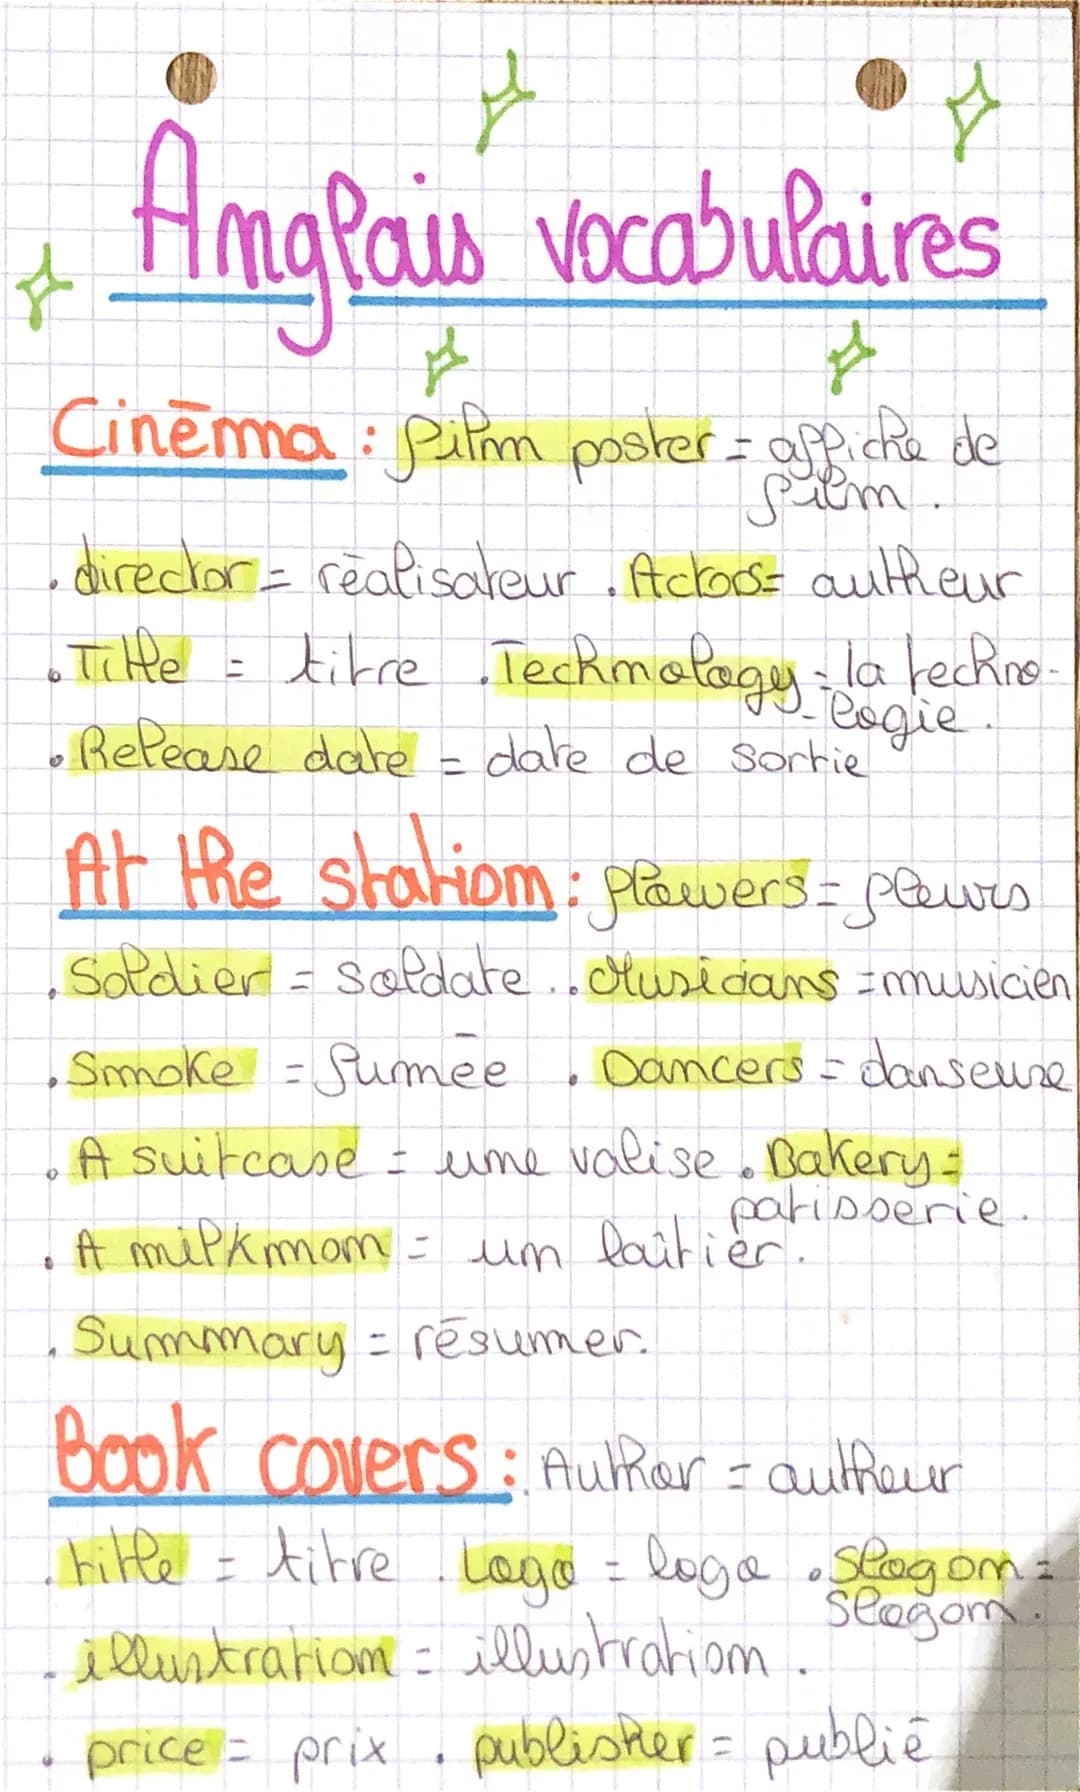 Anglais vocabulaires
Cinéma : film poster = affiche de
film.
. director = réalisateur . Actors = autheur
. Title = titre . Technology = la techno-
- logie.
. Release date = date de sortie
At the station : flowers = fleurs
. Soldier = soldate . . Musicians = musicien
. Smoke = fumée . Dancers = danseuse
. A suitcase = une valise . Bakery =
patisserie.
. A milkman = un laîtier.
. Summary = résumer.
Book covers : . Author = autheur
. title = titre . Logo = logo . Slogan =
slogan.
- illustration = illustration .
. price = prix . publisher = publié